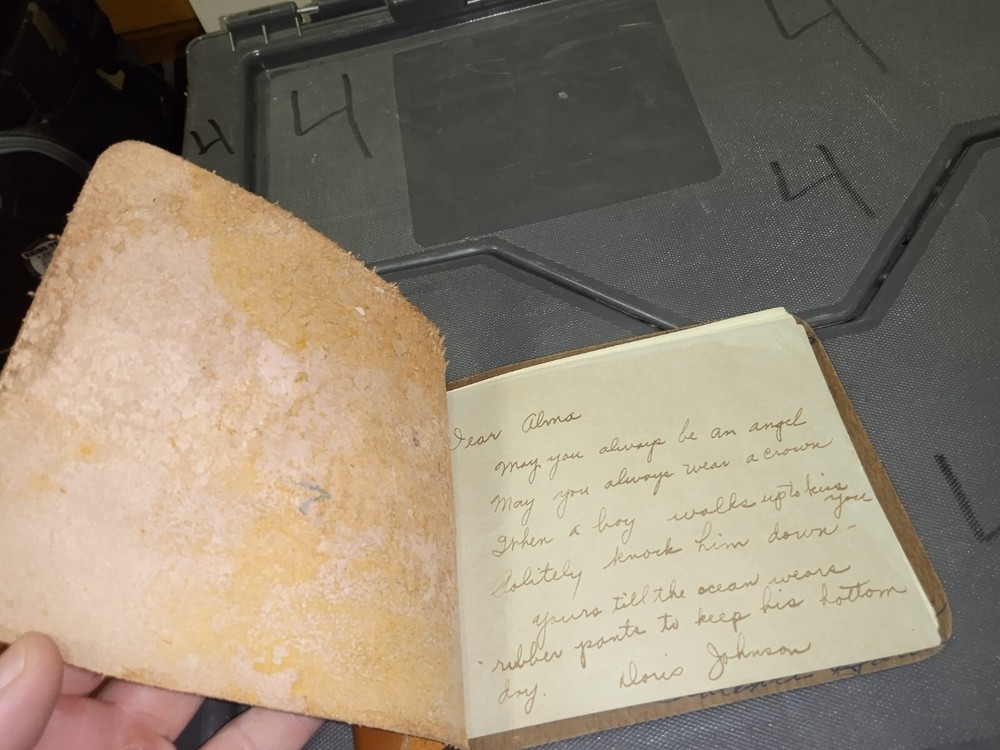 4
4
4
4
Dear Alma
May you always be an angel
May you always wear a crown
When a boy walks up to kiss
you
Politely knock him down -
yours till the ocean wears
rubber pants to keep his bottom
dry. Doris Johnson